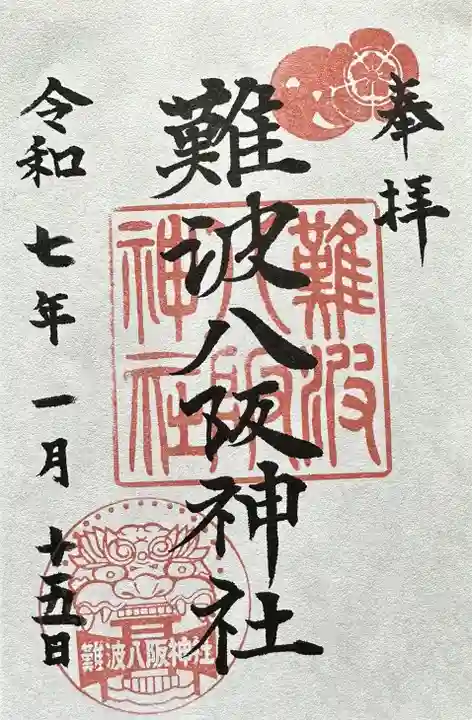 奉拝
難波八阪神社
難波
八阪
神社
令和七年一月十五日
難波八阪神社